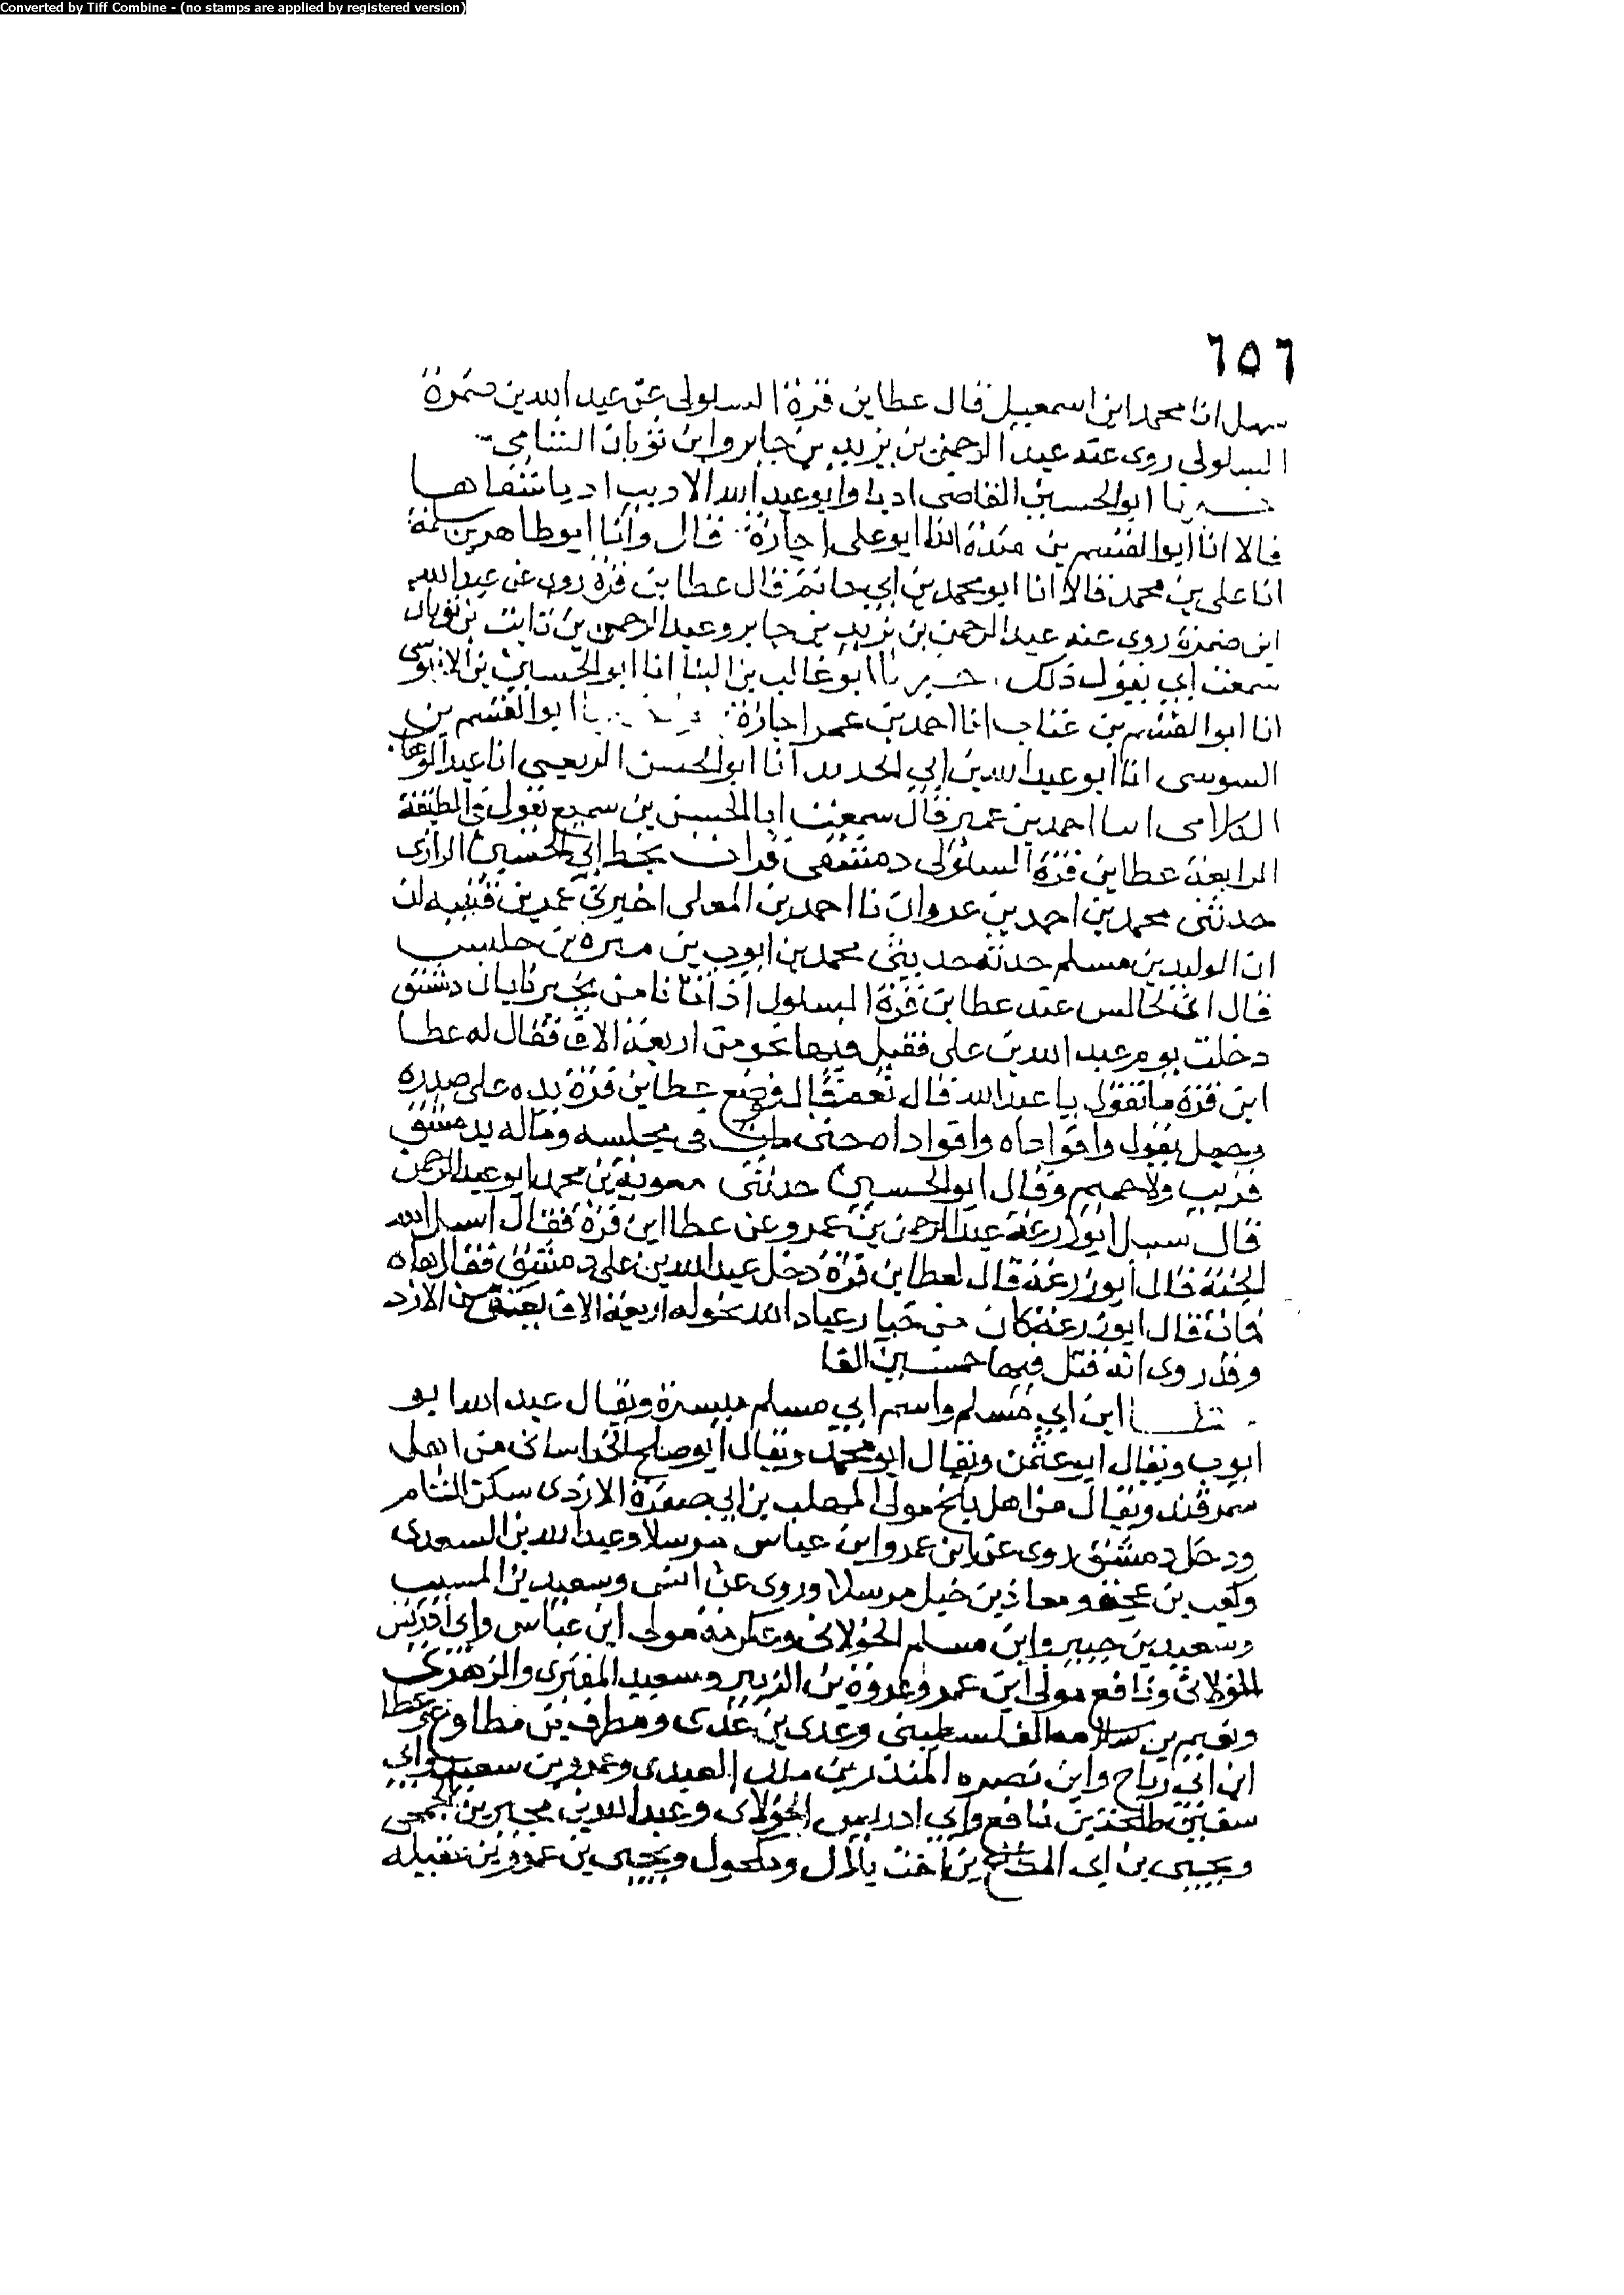 Converted by Tiff Combine - (no stamps are applied by registered version)
٦٥٦
سهل انا محمد ابن اسمعيل قال عطا بن قرة السلولى عن عبد الله بن ضمرة
السلولي روى عنه عبد الرحمن بن يزيد بن جابر وابن ثوبان الشامي
نا ابو الحسين القاضى اذنا وابو عبد الله الاديب شفاها
قالا انا ابو القسم بن مندة انا ابو على اجازة قال وانا ابو طاهر بن سلمة
انا على بن محمد قالا انا ابو محمد بن ابي حاتم قال عطا بن قرة روى عن عبد الله
ابن ضمرة روى عنه عبد الرحمن بن يزيد بن جابر وعبد الرحمن بن ثابت بن ثوبان
سمعت ابي يقول ذلك خبرنا ابو غالب بن البنا انا ابو الحسين بن الابنوسى
انا ابو القسم بن عتاب انا احمد بن عمير اجازة ابو القسم بن
السوسى انا ابو عبد الله بن ابي الحديد انا ابو الحسن الربعي انا عبد الوهاب
الكلابى انا احمد بن عمير قال سمعت ابا الحسن بن سميع يقول في الطبقة
الرابعة عطا بن قرة السلولى دمشقى قرات بخط ابي الحسين الرازى
حدثنى محمد بن احمد بن عدوان نا احمد بن المعلى اخبرني عمد بن قتيبه
ان الوليد بن مسلم حدثه حديثى محمد بن ايوب بن ميسرة بن حلبس
قال انى لجالس عند عطا بن قرة السلولى اذ اتانا من يخبرنا بان دمشق
دخلت يوم عبد الله بن على فقتل فيها نحو من اربعة الاف فقال له عطا
ابن قرة ما تقول يا عبد الله قال نعم قال فوضع عطا بن قرة يده على صدره
وجعل يقول واقواداه واقواداه حتى مات فى مجلسه وماله بدمشق
قريب ولا حميم وقال ابو الحسين حدثنى معوية بن محمد ابو عبد الرحمن
قال سيل ابو زرعة عبد الرحمن بن عمرو عن عطا ابن قرة فقال اسيل الله
الجنة قال ابو زرعة قال لعطا بن قرة دخل عبد الله بن على دمشق فقال هاه
فمات قال ابو زرعة كان من خيار عباد الله نحوله اربعة الاف من الازد
وقد روى انه قتل فيها خمسين الفا
عطا ابن ابي مسلم واسم ابي مسلم ميسرة ويقال عبد الله ابو
ايوب ويقال ابو عثمن ويقال ابو محمد ويقال ابو صالح الخراسانى من اهل
سمرقند ويقال من اهل بلخ مولى المهلب بن ابي صفرة الازدى سكن الشام
ودخل دمشق روى عن ابن عمر وابن عباس مرسلا وعبد الله بن السعدى
وكعب بن عجرة ومعاذ بن جبل مرسلا وروى عن انس وسعيد بن المسيب
وسعيد بن جبير وابن مسلم الخولانى وعكرمة مولى ابن عباس وابي ادريس
الخولانى ونافع مولى ابن عمر وعروة بن الزبير وسعيد المقبرى والزهرى
ونعيم بن سلامه الفلسطينى وعدى بن عدى ومطرف بن عطا
ابن ابي رباح وابن نصره المنذر بن ملك العبدى وعمرو بن سعيد وابي
سفين طلحة بن نافع وابي ادريس الخولانى وعبد الله بن محيريز الجمحى
ويحيى بن ابى المطاع بن اخت بلال ومكحول ويحيى بن عمرو بن عقيله